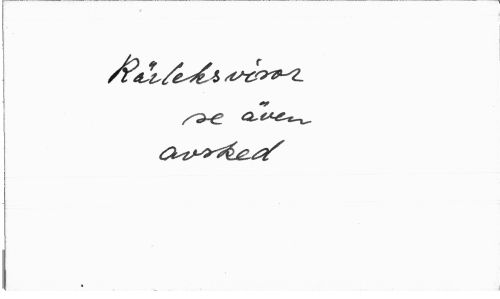 Kärleksvisor
se även
avsked